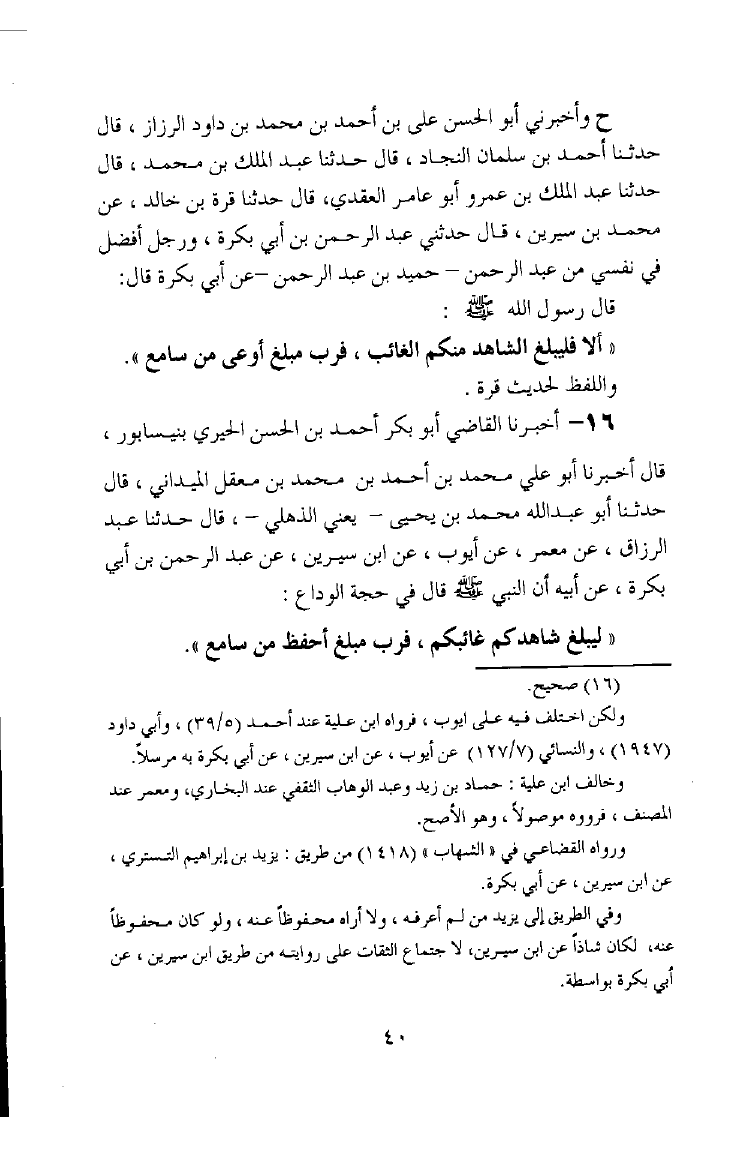 ح وأخبرني أبو الحسن على بن أحمد بن محمد بن داود الرزاز ، قال
حدثنا أحمد بن سلمان النجاد ، قال حدثنا عبد الملك بن محمد ، قال
حدثنا عبد الملك بن عمرو أبو عامر العقدي، قال حدثنا قرة بن خالد ، عن
محمد بن سيرين ، قال حدثني عبد الرحمن بن أبي بكرة ، ورجل أفضل
في نفسي من عبد الرحمن – حميد بن عبد الرحمن –عن أبي بكرة قال:
قال رسول الله ﷺ :
« ألا فليبلغ الشاهد منكم الغائب ، فرب مبلغ أوعى من سامع ».
واللفظ لحديث قرة .
١٦– أخبرنا القاضي أبو بكر أحمد بن الحسن الحيري بنيسابور ،
قال أخبرنا أبو علي محمد بن أحمد بن محمد بن معقل الميداني ، قال
حدثنا أبو عبدالله محمد بن يحيى – يعني الذهلي – ، قال حدثنا عبد
الرزاق ، عن معمر ، عن أيوب ، عن ابن سيرين ، عن عبد الرحمن بن أبي
بكرة ، عن أبيه أن النبي ﷺ قال في حجة الوداع :
« ليبلغ شاهدكم غائبكم ، فرب مبلغ أحفظ من سامع ».
(١٦) صحيح.
ولكن اختلف فيه على ايوب ، فرواه ابن علية عند أحمد (٣٩/٥) ، وأبي داود
(١٩٤٧) ، والنسائي (١٢٧/٧) عن أيوب ، عن ابن سيرين ، عن أبي بكرة به مرسلاً.
وخالف ابن علية : حماد بن زيد وعبد الوهاب الثقفي عند البخاري، ومعمر عند
المصنف ، فرووه موصولاً ، وهو الأصح.
ورواه القضاعي في « الشهاب » (١٤١٨) من طريق : يزيد بن إبراهيم التستري ،
عن ابن سيرين ، عن أبي بكرة.
وفي الطريق إلى يزيد من لم أعرفه ، ولا أراه محفوظاً عنه ، ولو كان محفوظاً
عنه، لكان شاذاً عن ابن سيرين، لا جتماع الثقات على روايته من طريق ابن سيرين ، عن
أبي بكرة بواسطة.
٤٠